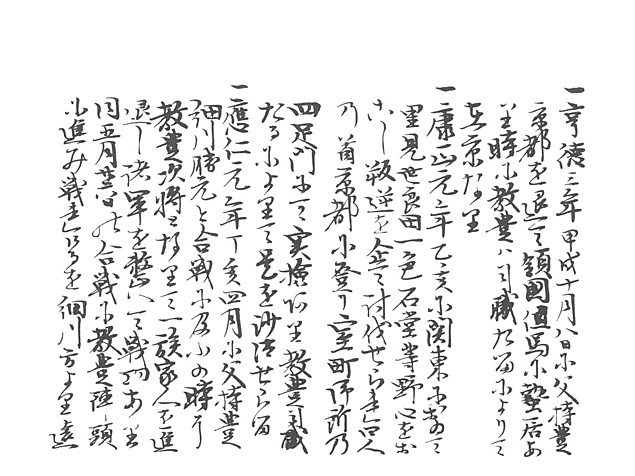 一享徳三年甲戌十月八日ニ父持豊
京都を退て領國但馬ニ蟄居あ
里時ニ教豊ハ司職たるによりて
在京なり
一康正元年乙亥ニ関東にありて
里見世良田一色石堂等野心を
こし叛逆を企て討伐せられ四人
乃首京都ニ登り室町御所乃
四足門ニて実検あり教豊司職
たるにより是を沙汰せらる
一應仁元年丁亥四月ニ父持豊
細川勝元と合戦ニ及ふの時
教豊次将となりて一族家人を進
退し諸軍を整へて戦功あり
同五月廿日の合戦ニ教豊陣頭
ニ進み戦を細川方より遠